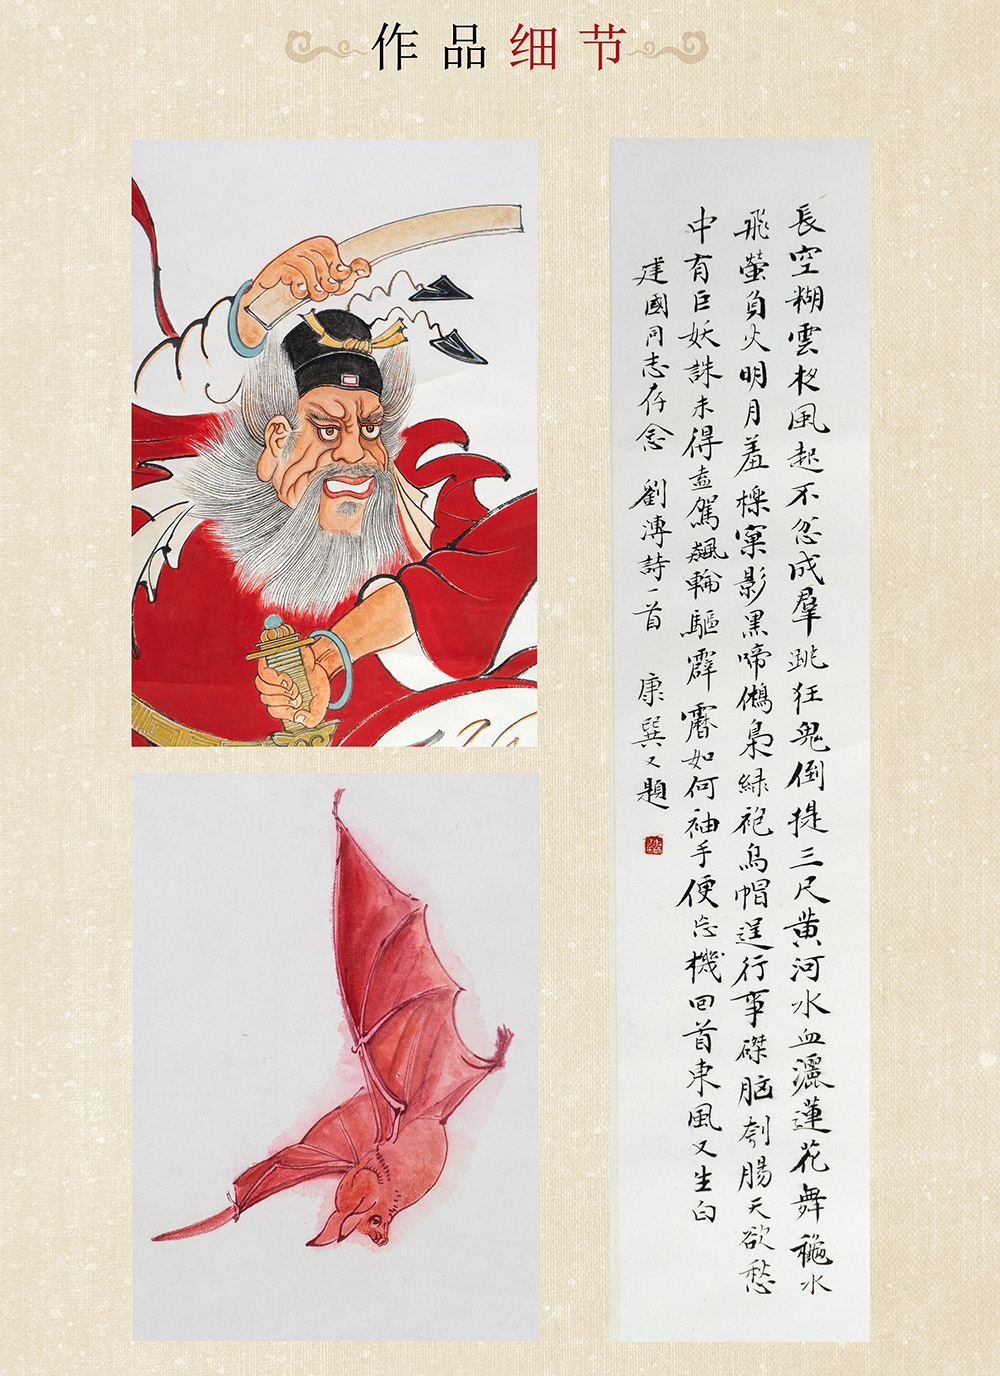 作品细节
長空糊雲杈風起不忿成羣跳狂鬼倒提三尺黄河水血灑蓮花舞龝水
飛螢負火明月羞櫟窠影黒啼鵂梟緑袍烏帽逞行事磔脳刳腸天欲愁
中有巨妖誅未得盍駕飊輪驅霹靂如何袖手便忘機回首東風又生白
建國同志存念 劉溥詩一首 康巽又題